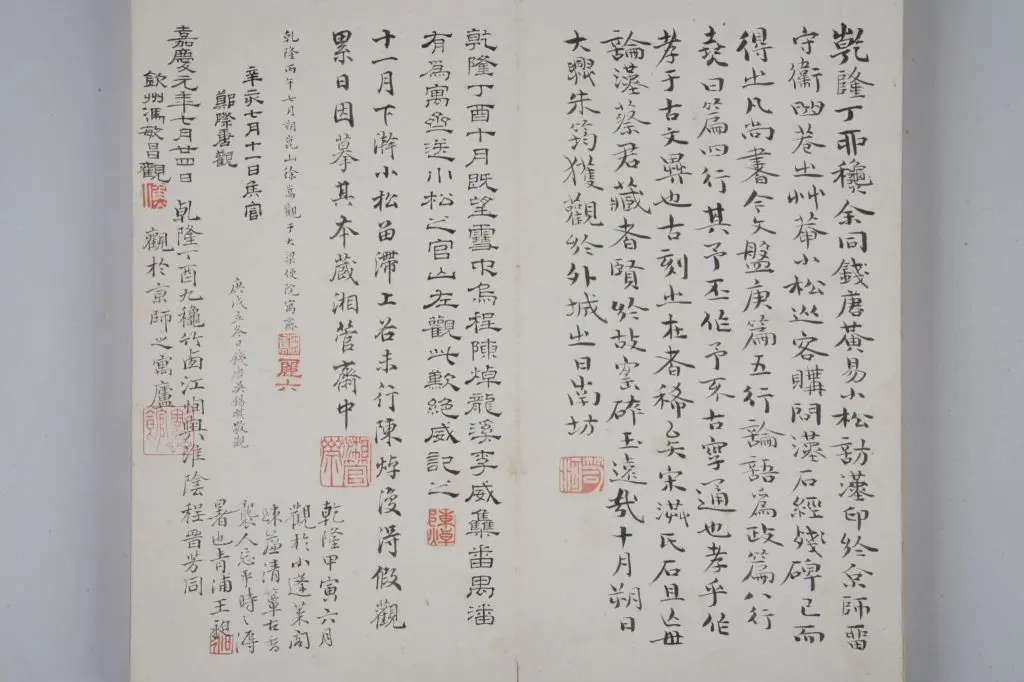 乾隆丁酉穐余同錢唐黃易小松訪漢印於京師畱
守衛凹巷之艸菴小松從客購問漢石經殘碑已而
得之凡尚書命文盤庚篇五行論語為政篇八行
堯曰篇四行其予丕作予不古字通也孝乎作
孝于古文異也古刻之在者稀矣宋洪氏石且亡
論漢蔡君藏者賢於故家碎玉遠哉十月朔日
大興朱筠獲觀於外城之日南坊
乾隆丁酉十月既望雪中烏程陳焯龍溪李威集番禺潘
有為寓齋送小松之官山左觀此歎絕威記之
陳焯
十一月下澣小松畱滯上谷未行陳焯復淂假觀
累日因摹其本藏湘管齋中
乾隆丙午七月朔崑山徐嵩觀于大梁使院寓齋
辛亥七月十一日長官
鄭際唐觀
庚戌立冬日錢唐吳錫麒敬觀
嘉慶元年七月廿四日
欽州馮敏昌觀
乾隆丁酉九穐竹鹵江恂與淮陰程晉芳同
觀於京師之寓廬
乾隆甲寅六月
觀於小蓬萊閣
疎簾清簟古香
襲人忘乎時之溽
暑也青浦王昶